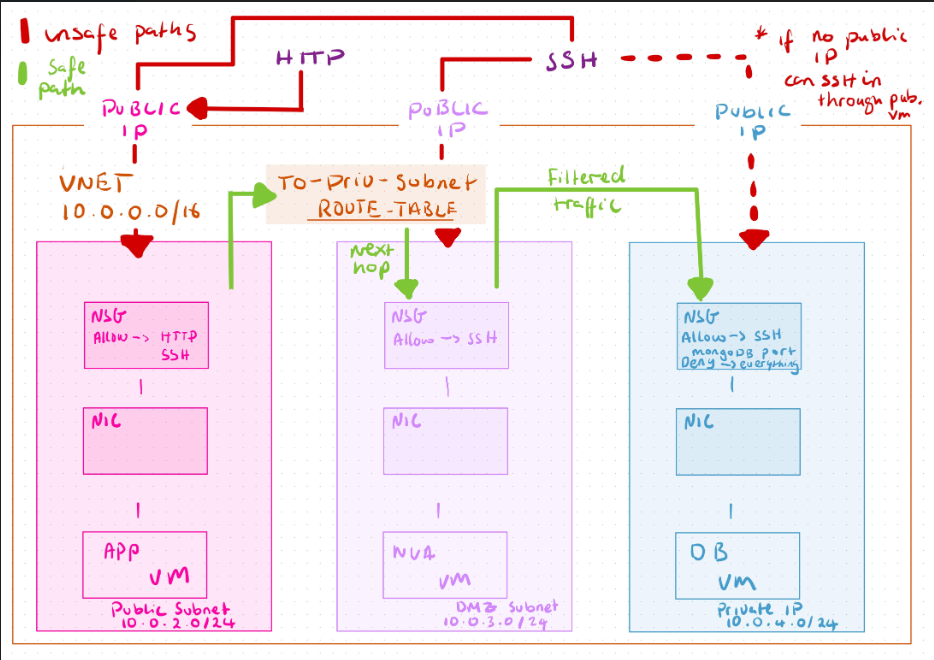 unsafe paths
Safe
path
HTTP
SSH
* if no public
IP
can ssh in
through pub.
vm
PUBLIC
IP
PUBLIC
IP
PUBLIC
IP
VNET
10.0.0.0/16
To-Priv-Subnet
ROUTE-TABLE
Filtered
traffic
Next
hop
NSG
Allow -> HTTP
SSH
NIC
APP
VM
Public Subnet
10.0.2.0/24
NSG
Allow -> SSH
NIC
NVA
VM
DMZ Subnet
10.0.3.0/24
NSG
Allow -> SSH
mongoDB port
Deny -> everything
NIC
DB
VM
Private IP
10.0.4.0/24